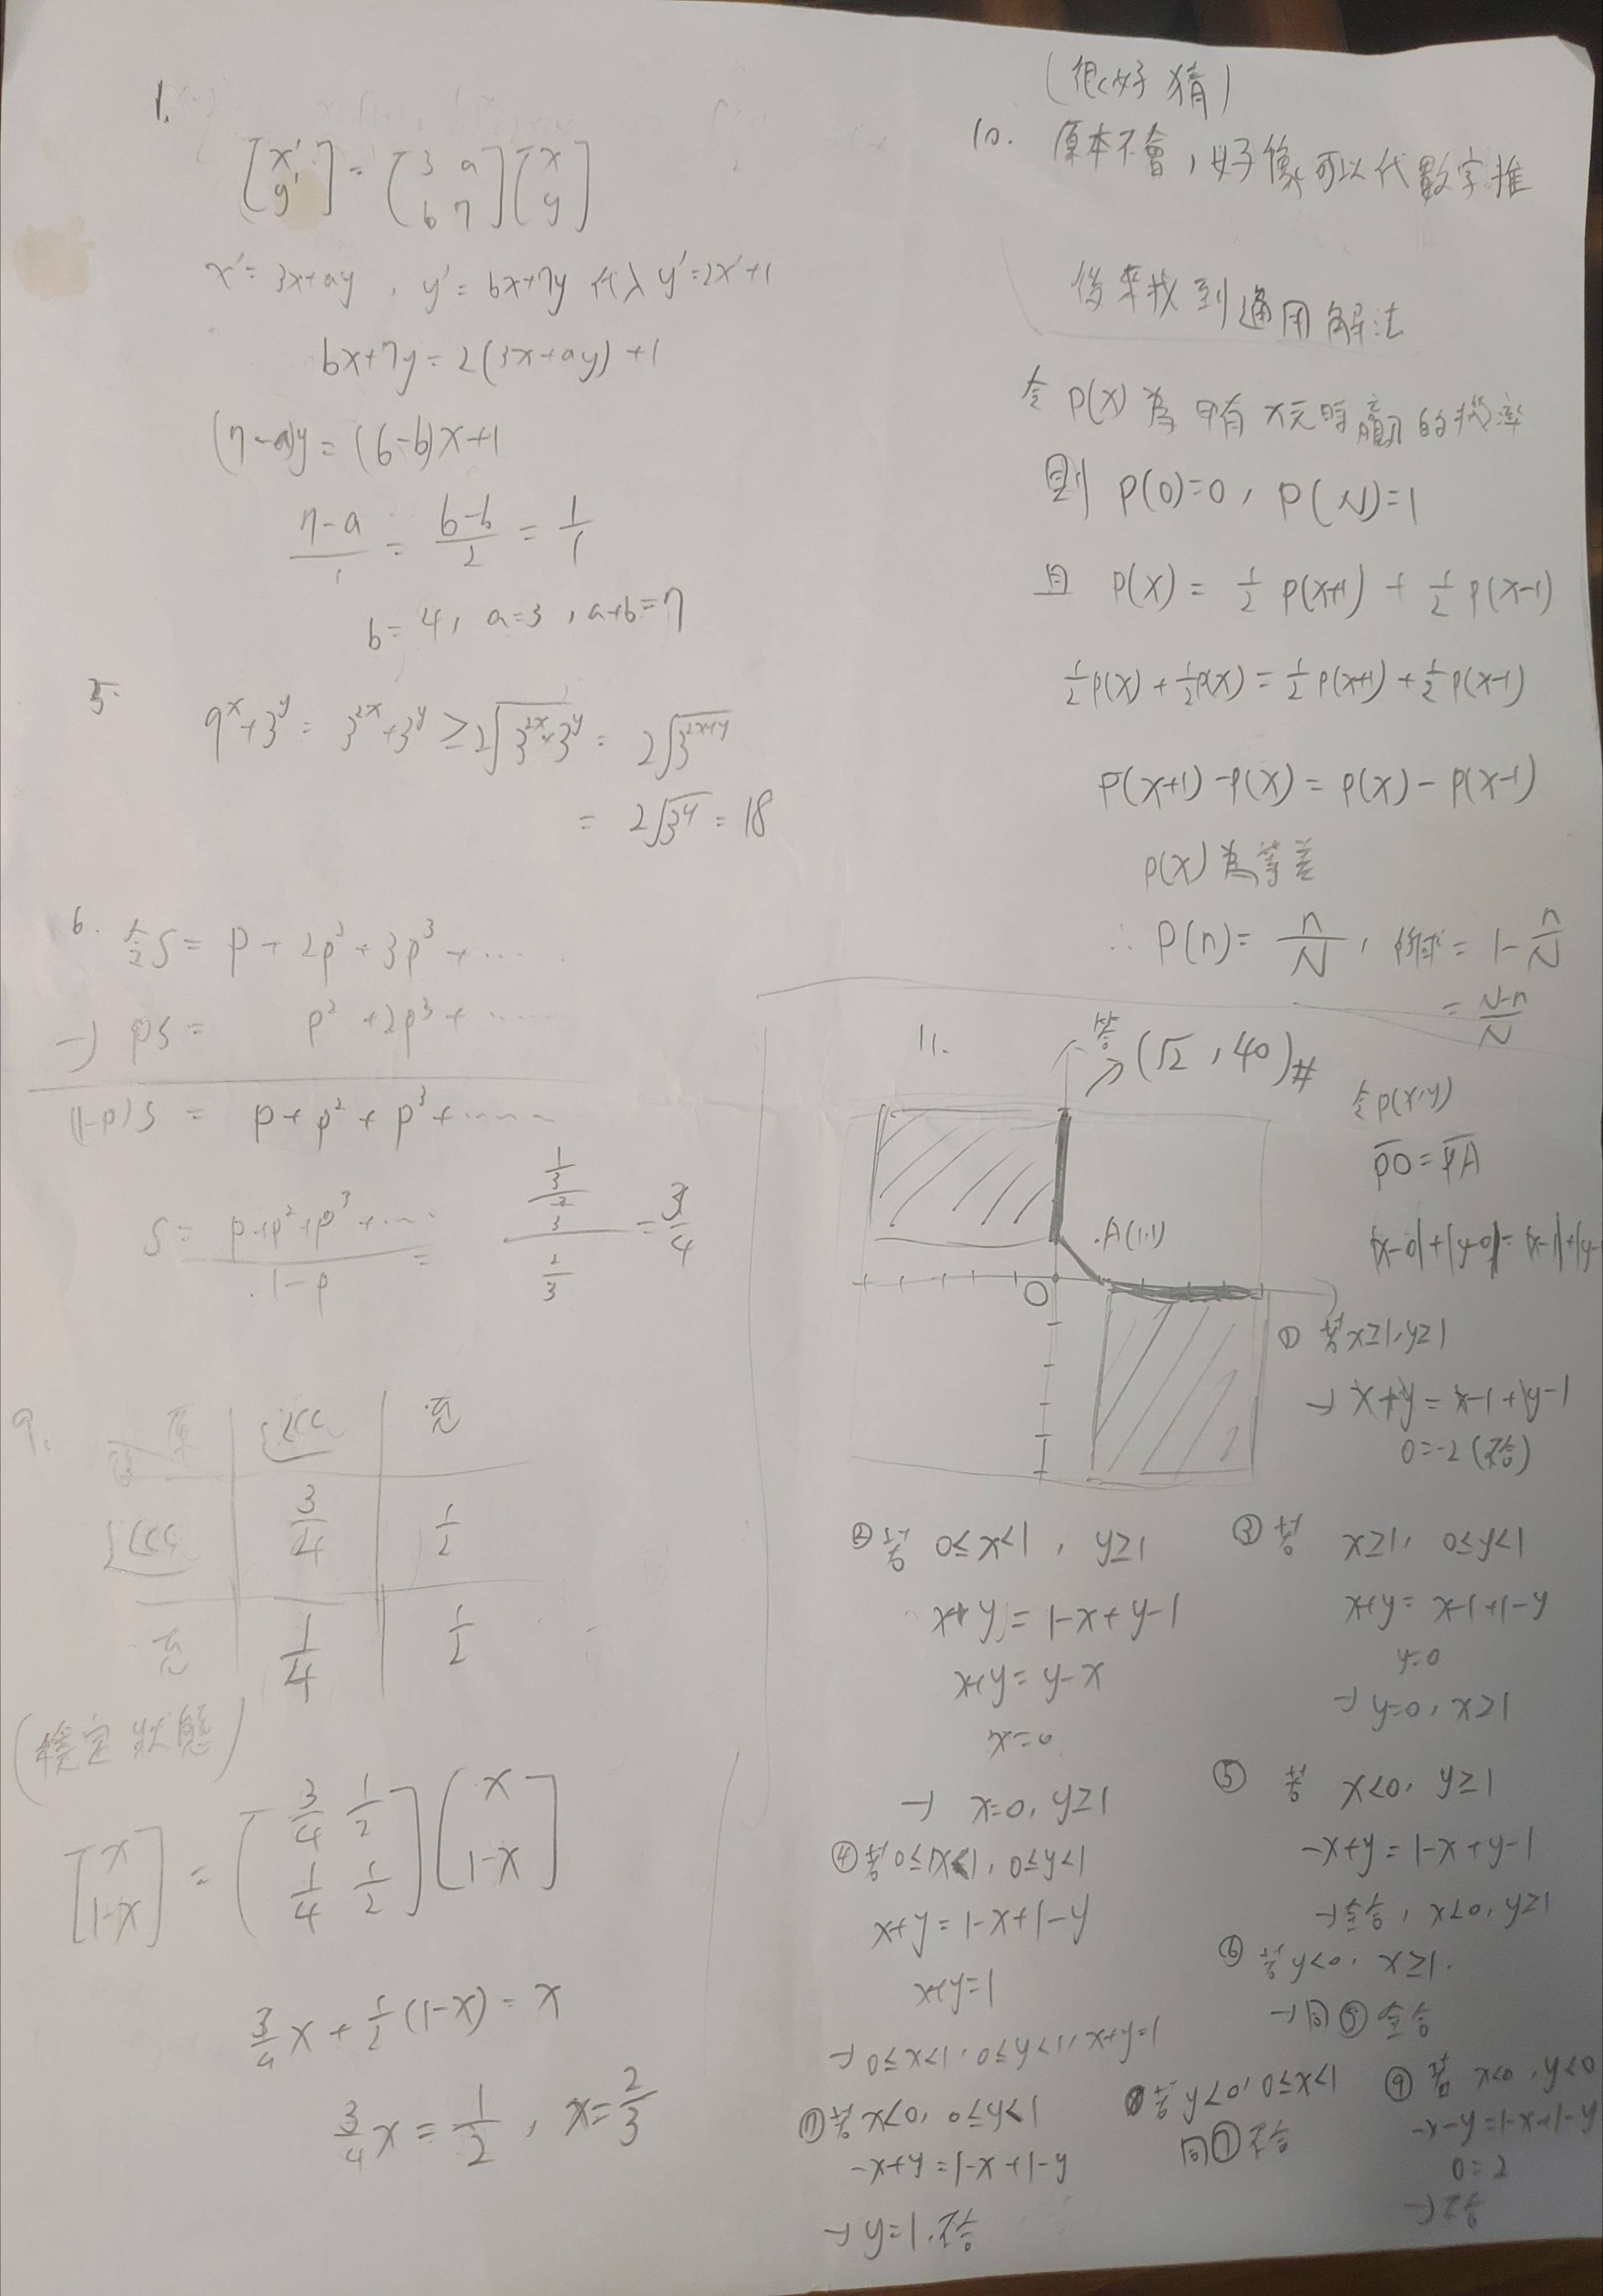 1.
[x' y'] = [3 a b 7][x y]
x' = 3x+ay , y' = bx+7y 代入 y'=2x'+1
bx+7y = 2(3x+ay)+1
(7-2a)y = (6-b)x+1
(7-a)/1 = (6-b)/2 = 1/1
b=4, a=3, a+b=7
5.
9^x+3^y = 3^{2x}+3^y ≥ 2√(3^{2x}×3^y) = 2√(3^{2x+y})
= 2√(3^4) = 18
6. S = p + 2p² + 3p³ + ....
-) pS = p² + 2p³ + .....
(1-p)S = p + p² + p³ + .....
S = (p+p²+p³+...)/(1-p) = ((1/3)/(2/3))/(2/3) = 3/4
9.
3/4 1/2
1/4 1/2
(穩定狀態)
[x 1-x] = [3/4 1/2 1/4 1/2][x 1-x]
3/4x + 1/2(1-x) = x
3/4x = 1/2 , x = 2/3
(很好猜)
10. 原本不會, 好像可以代數字推
後來找到通用解法
令 P(x) 為甲有x元時贏的機率
則 P(0)=0, P(N)=1
且 P(x) = 1/2 P(x+1) + 1/2 P(x-1)
1/2P(x)+1/2P(x) = 1/2P(x+1)+1/2P(x-1)
P(x+1)-P(x) = P(x)-P(x-1)
P(x)為等差
∴ P(n) = n/N, 所求 = 1-n/N
= (N-n)/N
11.
答
→ (√2, 40)#
令P(x,y)
PO=PA
|x-0|+|y-0|=|x-1|+|y-
A(1,1)
O
① 若x≥1, y≥1
→ x+y = x-1+y-1
0=-2 (不合)
② 若 0≤x<1, y≥1
x+y = 1-x+y-1
x+y = y-x
x=0
→ x=0, y≥1
③ 若 x≥1, 0≤y<1
x+y = x-1+1-y
y=0
→ y=0, x≥1
④ 若0≤x<1, 0≤y<1
x+y = 1-x+1-y
x+y=1
→ 0≤x<1, 0≤y<1, x+y=1
⑤ 若 x<0, y≥1
-x+y = 1-x+y-1
→全合, x<0, y≥1
⑥ 若y<0, x≥1.
→同⑤全合
⑦ 若x<0, 0≤y<1
-x+y = 1-x+1-y
→ y=1, 不合
若y<0, 0≤x<1
同⑦不合
⑨ 若 x<0, y<0
-x-y=1-x+1-y
0=2
→不合